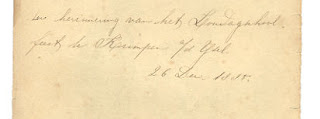 ter herinnering van het Zondagschool-
feest te Krimpen a/d IJsel
26 Dec. 18